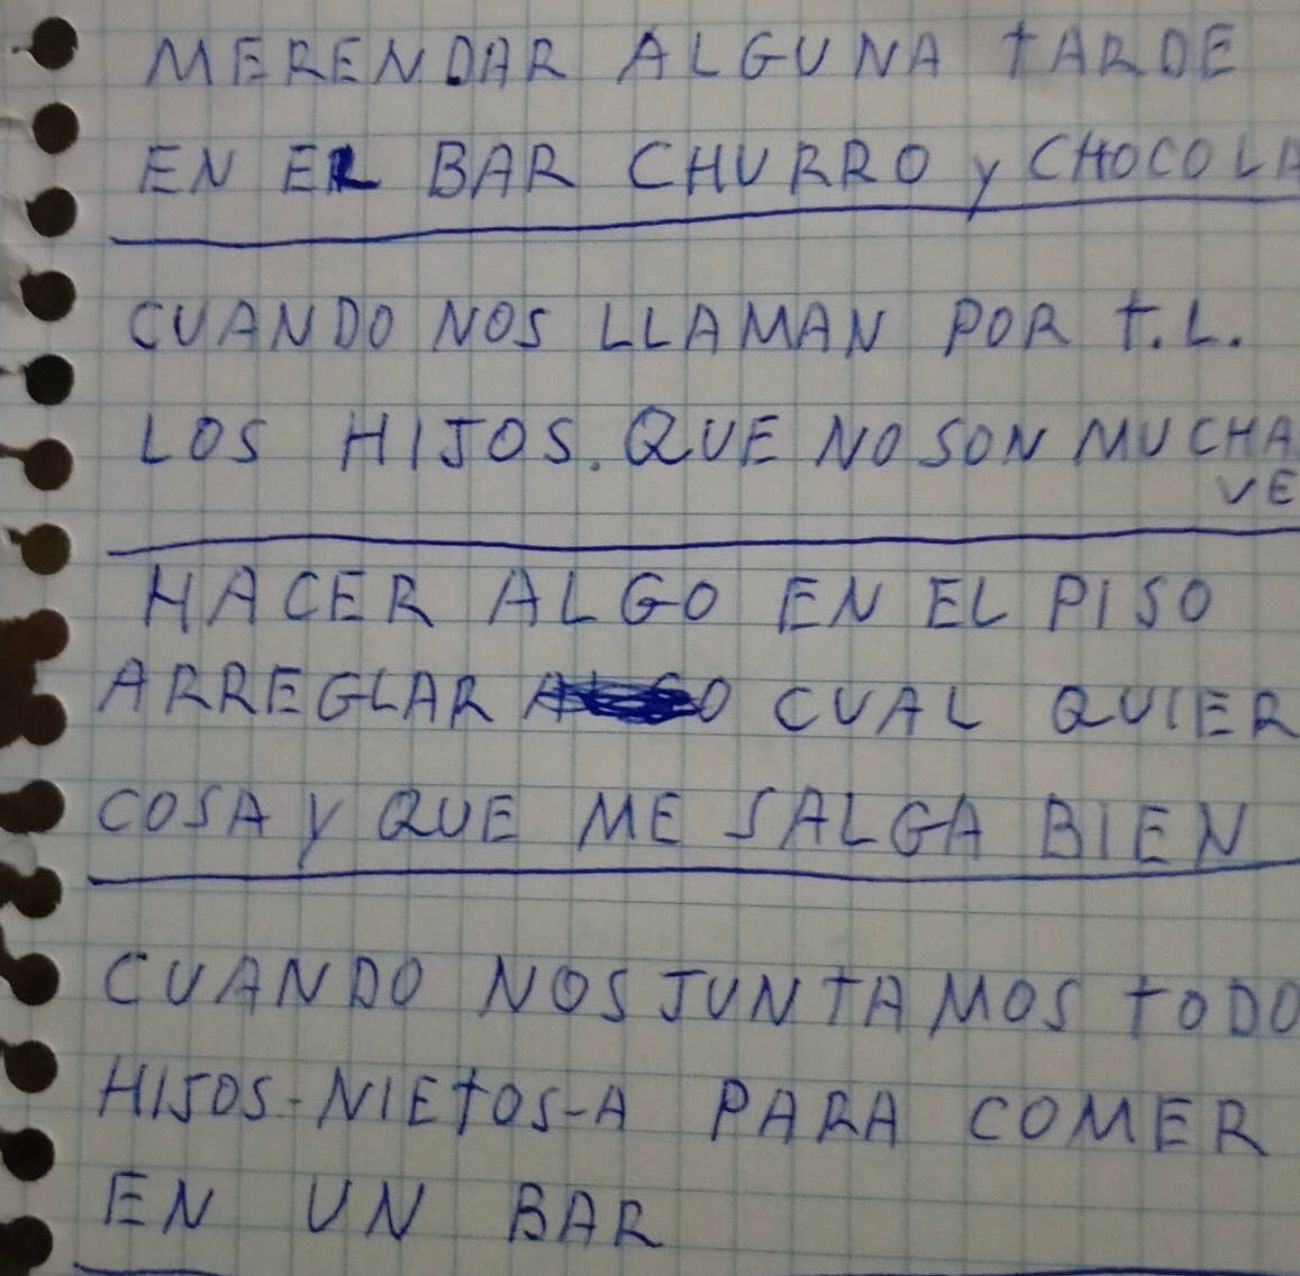 MERENDAR ALGUNA TARDE
EN EL BAR CHURRO y CHOCOLA
CUANDO NOS LLAMAN POR T.L.
LOS HIJOS. QUE NO SON MUCHA
VE
HACER ALGO EN EL PISO
ARREGLAR CUAL QUIER
COSA y QUE ME SALGA BIEN
CUANDO NOS JUNTAMOS TODO
HIJOS-NIETOS-A PARA COMER
EN UN BAR